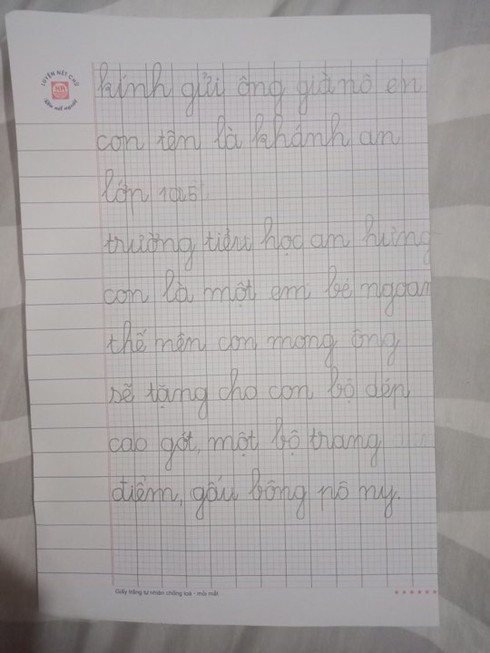 LUYỆN NÉT CHỮ
kính gửi ông già nô en
con tên là khánh an
lớp 1a5
trường tiểu học an hưng
con là một em bé ngoan
thế nên con mong ông
sẽ tặng cho con bộ dép
cao gót, một bộ trang
điểm, gấu bông pô ny.
Giấy trắng tự nhiên chống loá - mỏi mắt